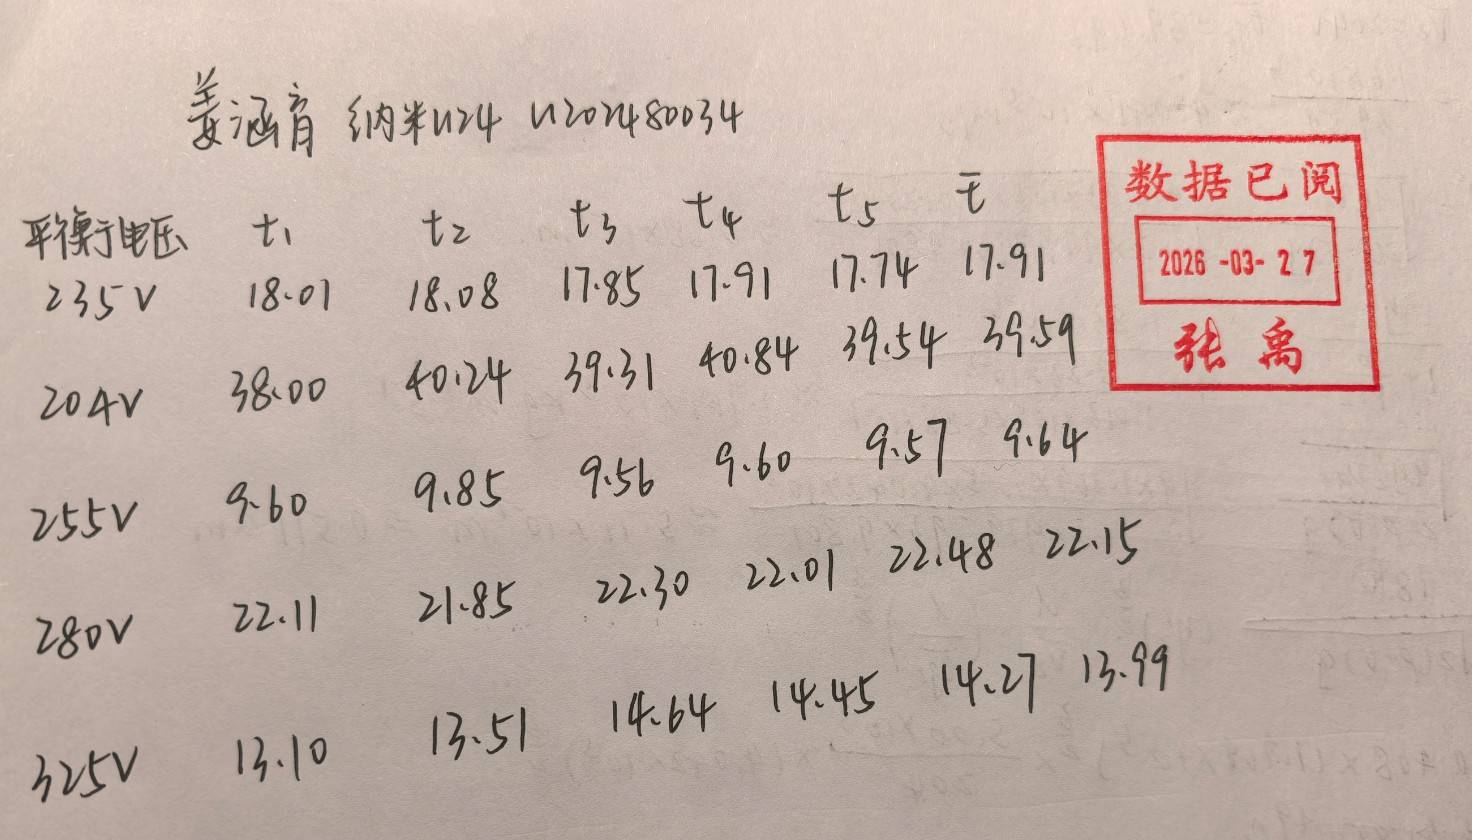 姜涵育 纳米U24 U202480034
平衡电压 t₁ t₂ t₃ t₄ t₅ t̄
235V 18.01 18.08 17.85 17.91 17.74 17.91
204V 38.00 40.24 39.31 40.84 39.54 39.59
255V 9.60 9.85 9.56 9.60 9.57 9.64
280V 22.11 21.85 22.30 22.01 22.48 22.15
325V 13.10 13.51 14.64 14.45 14.27 13.99
数据已阅
2026-03-27
张禹